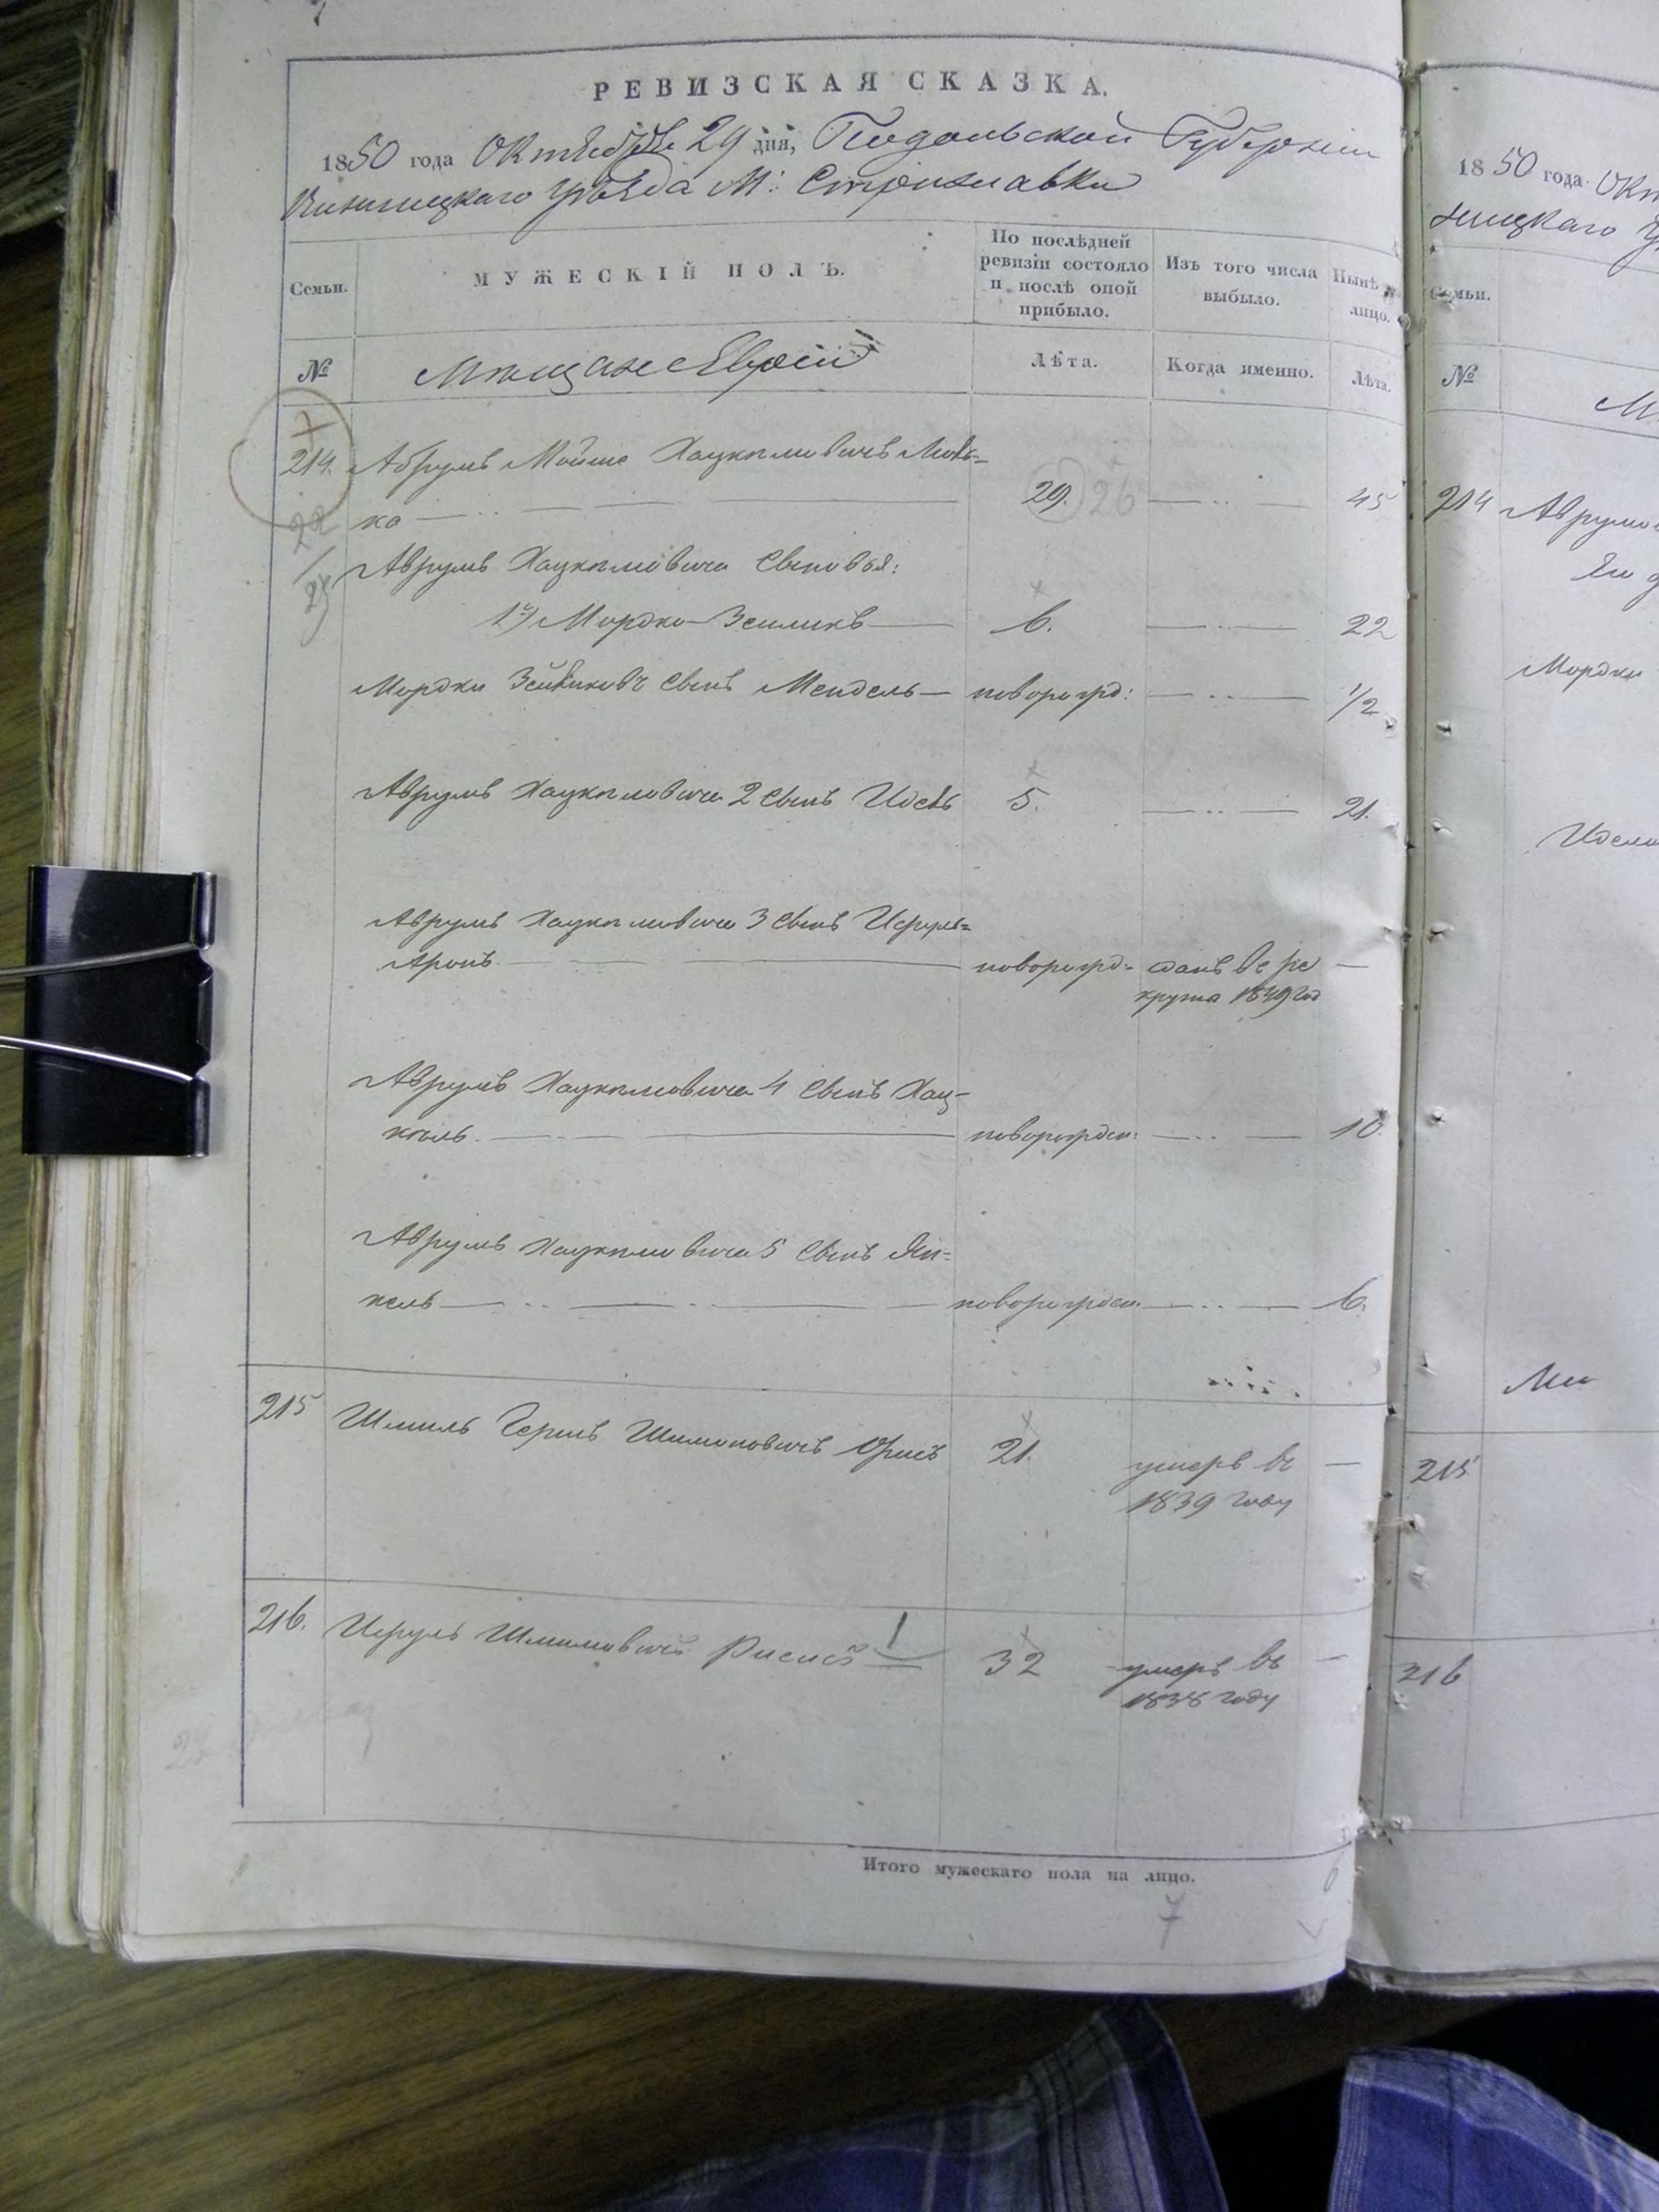 РЕВИЗСКАЯ СКАЗКА.
1850 года Октября 29 дня, Подольской Губернии
Винницкаго уѣзда М: Стрижавки
Семьи.
МУЖЕСКІЙ ПОЛЪ.
По послѣдней ревизіи состояло и послѣ оной прибыло.
Изъ того числа выбыло.
Нынѣ на лицо.
№
Мѣщане Евреи
Лѣта.
Когда именно.
Лѣта.
7
214. Абрумъ Мойше Хацкелевичъ
ко 29. 26 45
22
Аврумъ Хацкелевича сыновья:
1й Мордко Зеиликъ 6. 22
Мордки сынъ Мендель новорожд: 1/2
Аврумъ Хацкелевича 2 сынъ Идель 5. 21.
Аврумъ Хацкелевича 3 сынъ Исруль=
Аронъ новорожд= сданъ въ ре
крута 1849 год
Аврумъ Хацкелевича 4 сынъ Хац-
кель новорожден: 10
Аврумъ Хацкелевича 5 сынъ Ян=
кель новорожден. 6.
215 Шмиль Герша Шимоновичъ 21. умеръ въ
1839 году
216. Исруль Шмилевичъ 32 умеръ въ
1838 году
Итого мужескаго пола на лицо.
7
1850 года Окт
ницкаго у
Семьи.
№
М
214 Аврума
Его
Мордки
Иделя
215
216